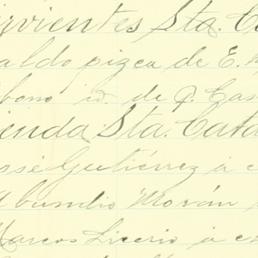 irvientes Sta. Ca
aldo pizca de E. M
bono id. de J. Cas
ienda Sta. Cata
osé Gutiérrez á c
Abundio Morán
Marcos Licerio á c